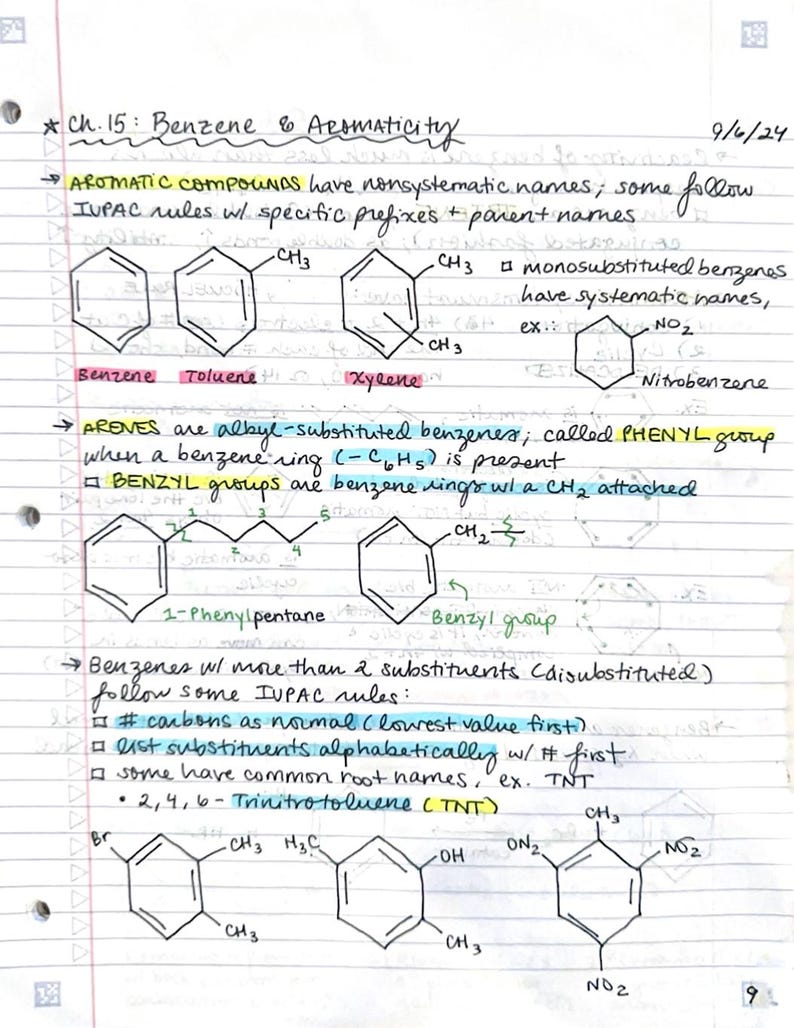 * Ch. 15: Benzene & Aromaticity 9/6/24
→ AROMATIC COMPOUNDS have nonsystematic names; some follow
IUPAC rules w/ specific prefixes + parent names
CH3
CH3
CH3
□ monosubstituted benzenes
have systematic names,
ex.:
NO2
Nitrobenzene
Benzene Toluene Xylene
→ ARENES are alkyl-substituted benzenes; called PHENYL group
when a benzene ring (-C6H5) is present
□ BENZYL groups are benzene rings w/ a CH2 attached
1 2 3 4 5
CH2
1-Phenylpentane
Benzyl group
→ Benzenes w/ more than 2 substituents (disubstituted)
follow some IUPAC rules:
□ # carbons as normal (lowest value first)
□ list substituents alphabetically w/ # first
□ some have common root names, ex. TNT
• 2,4,6-Trinitrotoluene (TNT)
Br CH3
CH3
H3C OH
CH3
CH3
ON2 NO2
NO2
9